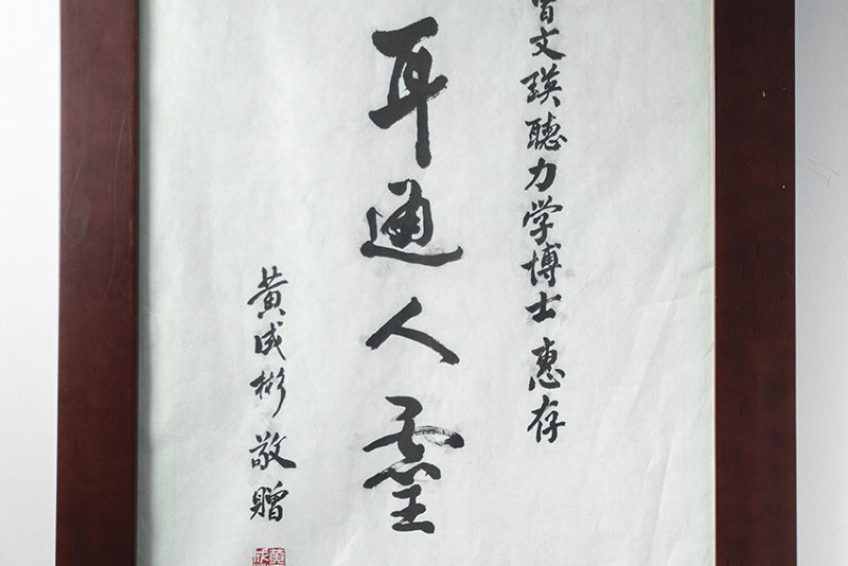 曾文瑛聽力学博士 惠存
耳通人靈
黄成彬 敬贈